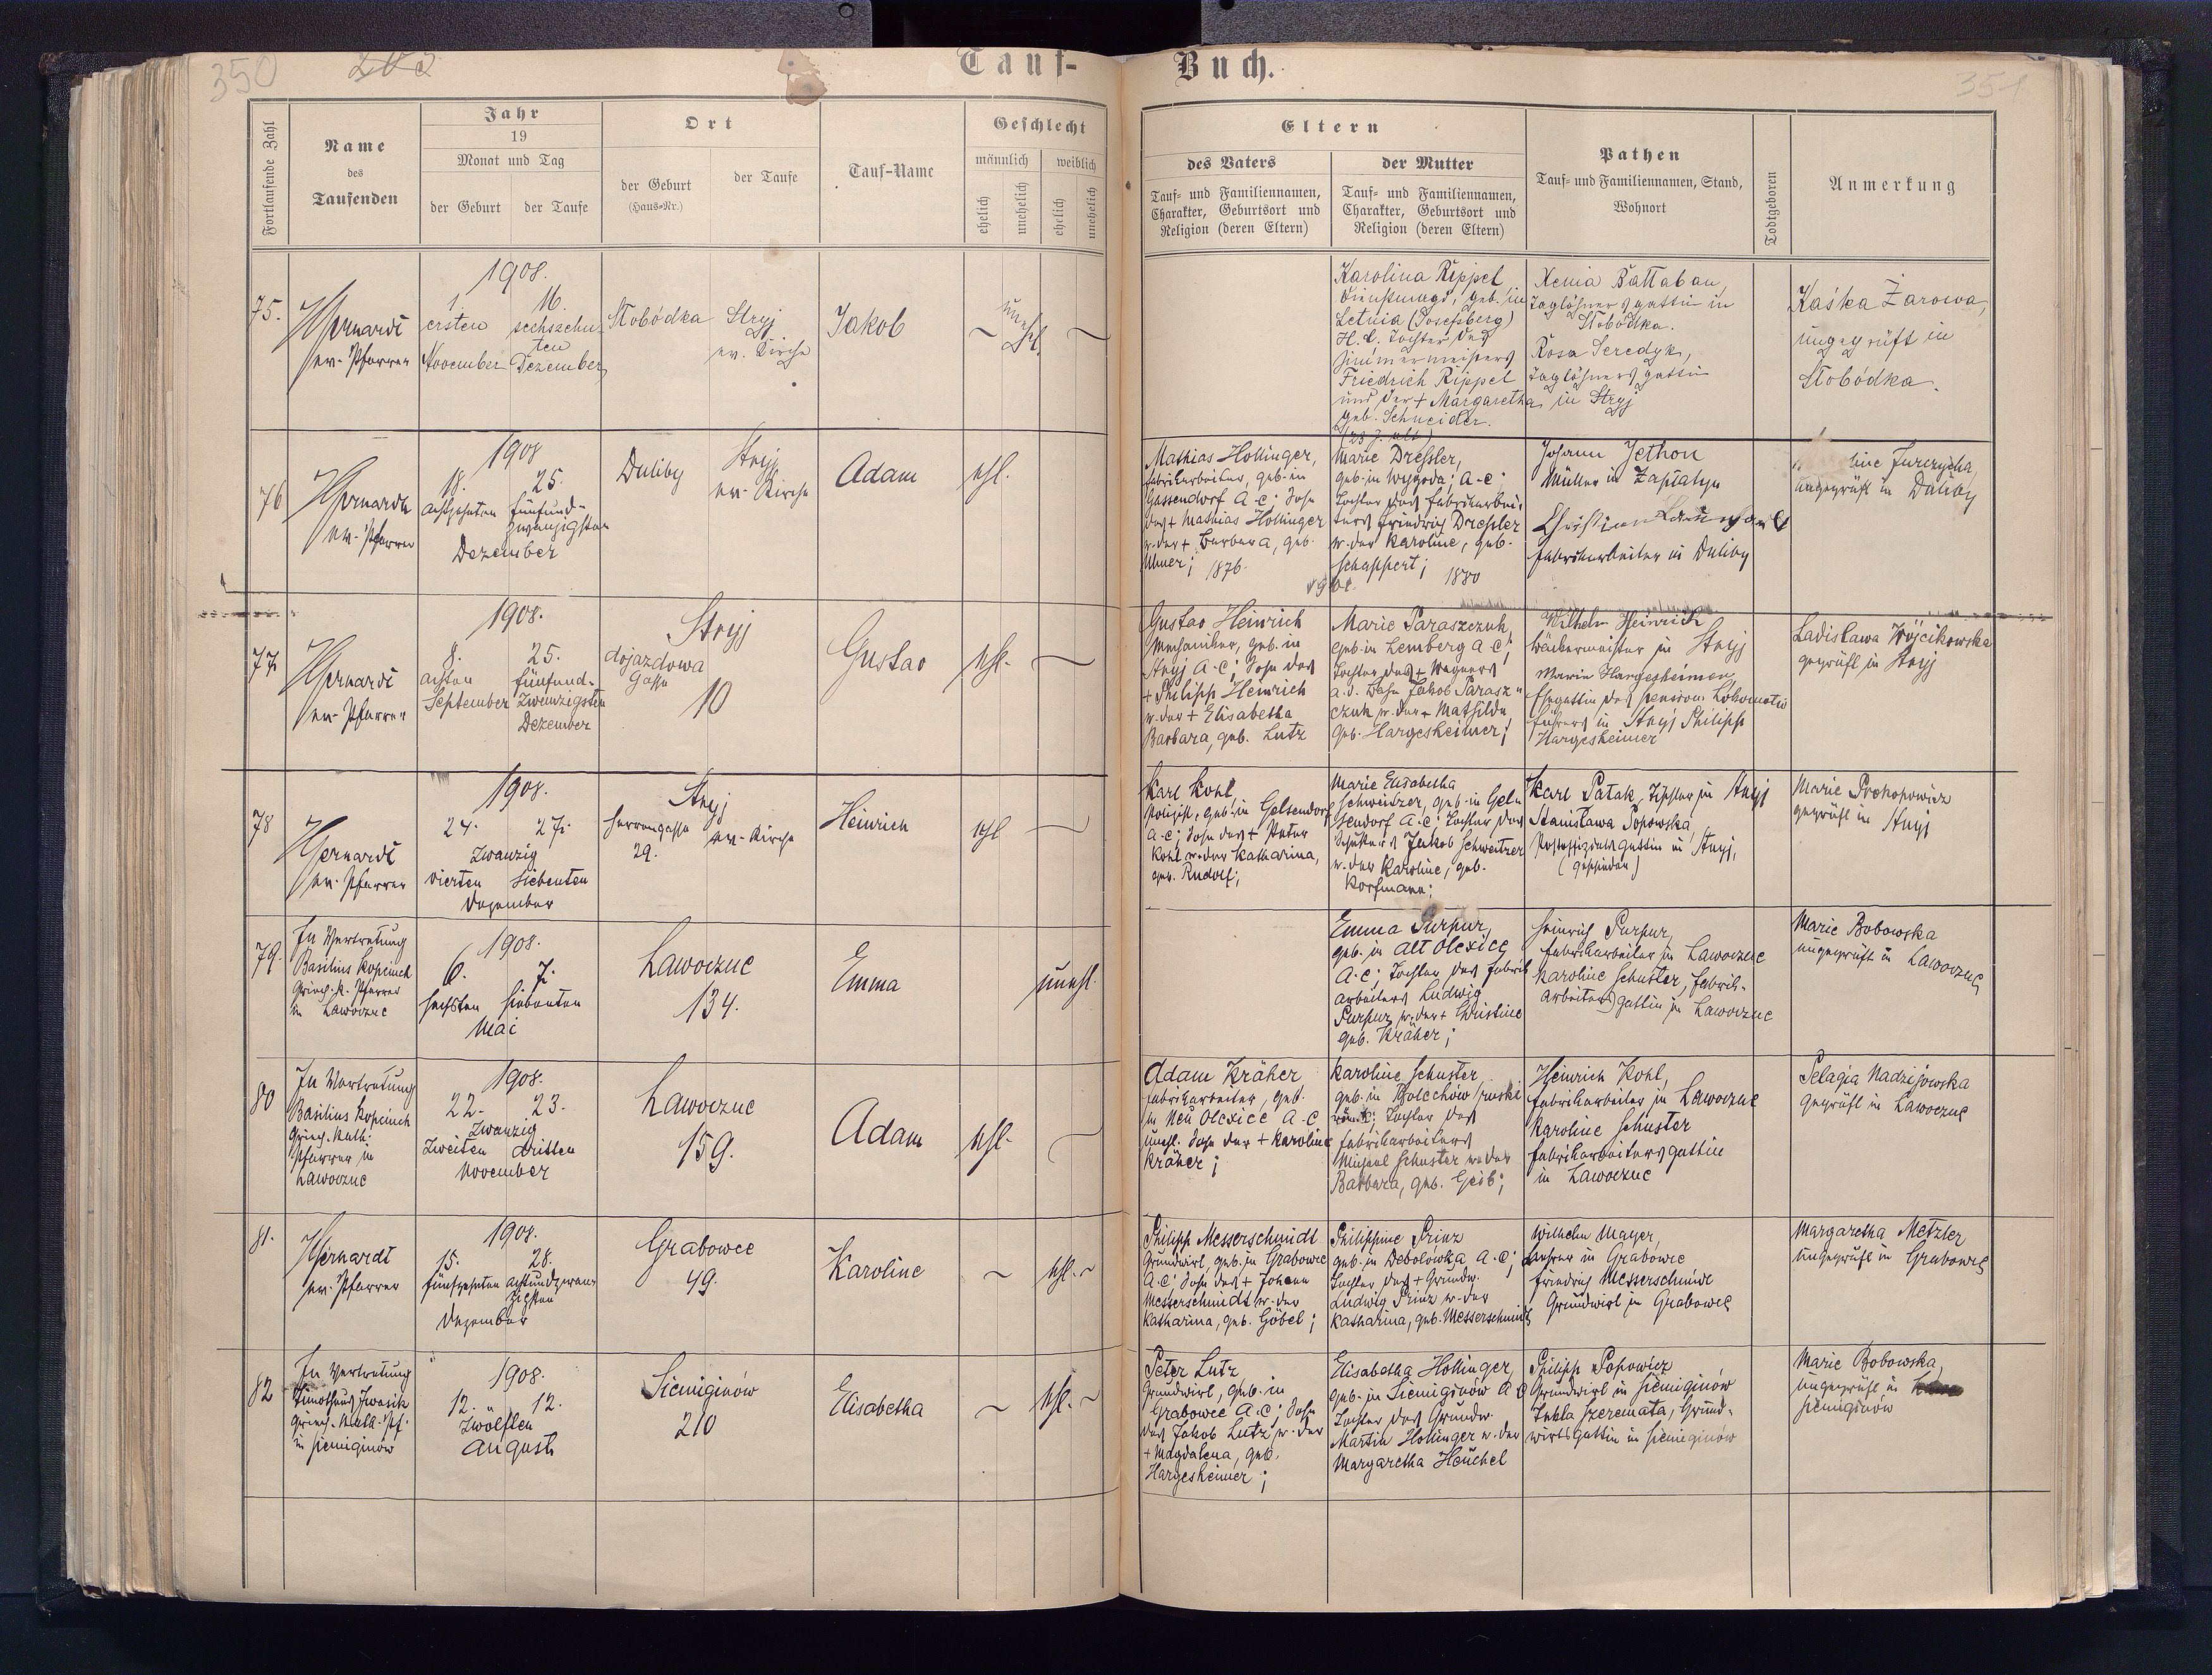 350
203
Tauf-
Buch.
351
Fortlaufende Zahl
Name
des
Taufenden
Jahr
19
Monat und Tag
der Geburt
der Taufe
Ort
der Geburt
(Haus-Nr.)
der Taufe
Tauf-Name
Geschlecht
männlich
weiblich
ehelich
unehelich
ehelich
unehelich
Eltern
des Vaters
Tauf- und Familiennamen,
Charakter, Geburtsort und
Religion (deren Eltern)
der Mutter
Tauf- und Familiennamen,
Charakter, Geburtsort und
Religion (deren Eltern)
Pathen
Tauf- und Familiennamen, Stand,
Wohnort
Todtgeboren
Anmerkung
75.
ev. Pfarrer
1908.
1. 16.
ersten sechszehn-
ten
November Dezember
Slobódka
Stryj
ev. Kirche
Jakob
unehl.
Karolina Rippel,
Dienstmagd, geb. in
Letnia (Josefsberg)
H. C. Tochter des
Zimmermeisters
Friedrich Rippel
und der + Margaretha
geb. Schneider.
(23 J. alt)
Xenia Battaban,
Taglöhnersgattin in
Slobódka.
Rosa Seredyk,
Taglöhnersgattin
in Stryj
Kaśka Żarowa,
ungeprüft in
Slobódka.
76
ev. Pfarrer
1908
18. 25.
achtzehnten fünfund-
zwanzigsten
Dezember
Duliby
Stryj
ev. Kirche
Adam
ehl.
Mathias Hollinger,
Fabrikarbeiter, geb. in
Gassendorf A.C; Sohn
des + Mathias Hollinger
u. der + Barbara, geb.
1876.
Marie Dressler,
geb. in Wygoda; A.C;
Tochter des Fabrikarbei-
ters Friedrich Dressler
u. der Karoline, geb.
Schappert; 1880
Johann Jethon
Müller in Zaplatyn
Christian
Fabrikarbeiter in Duliby
Jurczycha,
ungeprüft in Duliby
77.
ev. Pfarrer
1908.
8. 25.
achten fünfund-
September zwanzigsten
Dezember
Stryj
dojazdowa
Gasse
10
Gustav
ehl.
Gustav Heinrich
Mechaniker, geb. in
Stryj A.C; Sohn des
+ Philipp Heinrich
u. der + Elisabetha
Barbara, geb. Lutz
Marie Paraszczuk,
geb. in Lemberg A.C;
Tochter des + Wagners
a.d. Bahn Jakob Parasz-
czuk u. der + Mathilde
geb. Hargesheimer;
Wilhelm Heinrich
Bäckermeister in Stryj
Marie Hargesheimer
Ehegattin des pension. Lokomotiv
führers in Stryj Philipp
Hargesheimer
Ladislawa Wójcikowska
geprüft in Stryj
78
ev. Pfarrer
1908.
24. 27.
Zwanzig
vierten siebenten
Dezember
Stryj
Herrengasse
29.
ev. Kirche
Heinrich
ehl
Karl Kohl
Polizist, geb. in Gelsendorf
A.C; Sohn des + Peter
Kohl u. der Katharina,
geb. Rudolf;
Marie Elisabetha
Schweitzer, geb. in Gel-
sendorf A.C; Tochter des
Schusters Jakob Schweitzer
u. der Karoline, geb.
Korfmann;
Karl Patak, Tischler in Stryj
Stanisława Popowska
Postoffizialsgattin in Stryj,
(geschieden)
Marie Prokopowicz
geprüft in Stryj
79.
In Vertretung
Basilius Kopciuch
Griech. k. Pfarrer
in Lawoczne
1908.
6. 7.
sechsten siebenten
Mai
Lawoczne
134.
Emma
unehl.
Emma Purpur,
geb. in Alt Olexice
A.C; Tochter des Fabrik
arbeiters Ludwig
Purpur u. der + Christine
geb. Kräher;
Heinrich Purpur,
Fabrikarbeiter in Lawoczne
Karoline Schuster, Fabrik-
arbeitersgattin in Lawoczne
Marie Bobowska
ungeprüft in Lawoczne
80
In Vertretung
Basilius Kopciuch
Griech. kath.
Pfarrer in
Lawoczne
1908.
22. 23.
Zwanzig
Zweiten dritten
November
Lawoczne
159.
Adam
ehl.
Adam Kräher
Fabrikarbeiter, geb.
in Neu Olexice A.C
unehl. Sohn der + Karoline
Kräher;
Karoline Schuster
geb. in Bolechów ruski
röm. k; Tochter des
Fabrikarbeiters
Michael Schuster u. der
Barbara, geb. Geib;
Heinrich Kohl,
Fabrikarbeiter in Lawoczne
Karoline Schuster
Fabrikarbeitersgattin
in Lawoczne
Pelagia Nadzijowska
geprüft in Lawoczne
81.
ev. Pfarrer
1908.
15. 28.
fünfzehnten achtundzwan-
zigsten
Dezember
Grabowce
49.
Karoline
ehl.
Philipp Messerschmidt
Grundwirt, geb. in Grabowce
A.C; Sohn des + Johann
Messerschmidt u. der
Katharina, geb. Göbel;
Philippine Prinz
geb. in Debolówka A.C;
Tochter des + Grundw.
Ludwig Prinz u. der
Katharina, geb. Messerschmidt
Wilhelm Mayer,
Lehrer in Grabowce
Friedrich Messerschmidt
Grundwirt in Grabowce
Margaretha Metzler
ungeprüft in Grabowce
82
In Vertretung
Timotheus Iwasik
Griech. kath. Pf.
in Siemiginów
1908.
12. 12.
Zwölften
August
Siemiginów
210
Elisabetha
ehl.
Peter Lutz
Grundwirt, geb. in
Grabowce A.C; Sohn
des Jakob Lutz u. der
+ Magdalena, geb.
Hargesheimer;
Elisabetha Hollinger,
geb. in Siemiginów A.C
Tochter des Grundw.
Martin Hollinger u. der
Margaretha Heuchel
Philipp Popowicz
Grundwirt in Siemiginów
Tekla Szeremata, Grund-
wirtsgattin in Siemiginów
Marie Bobowska,
ungeprüft in
Siemiginów